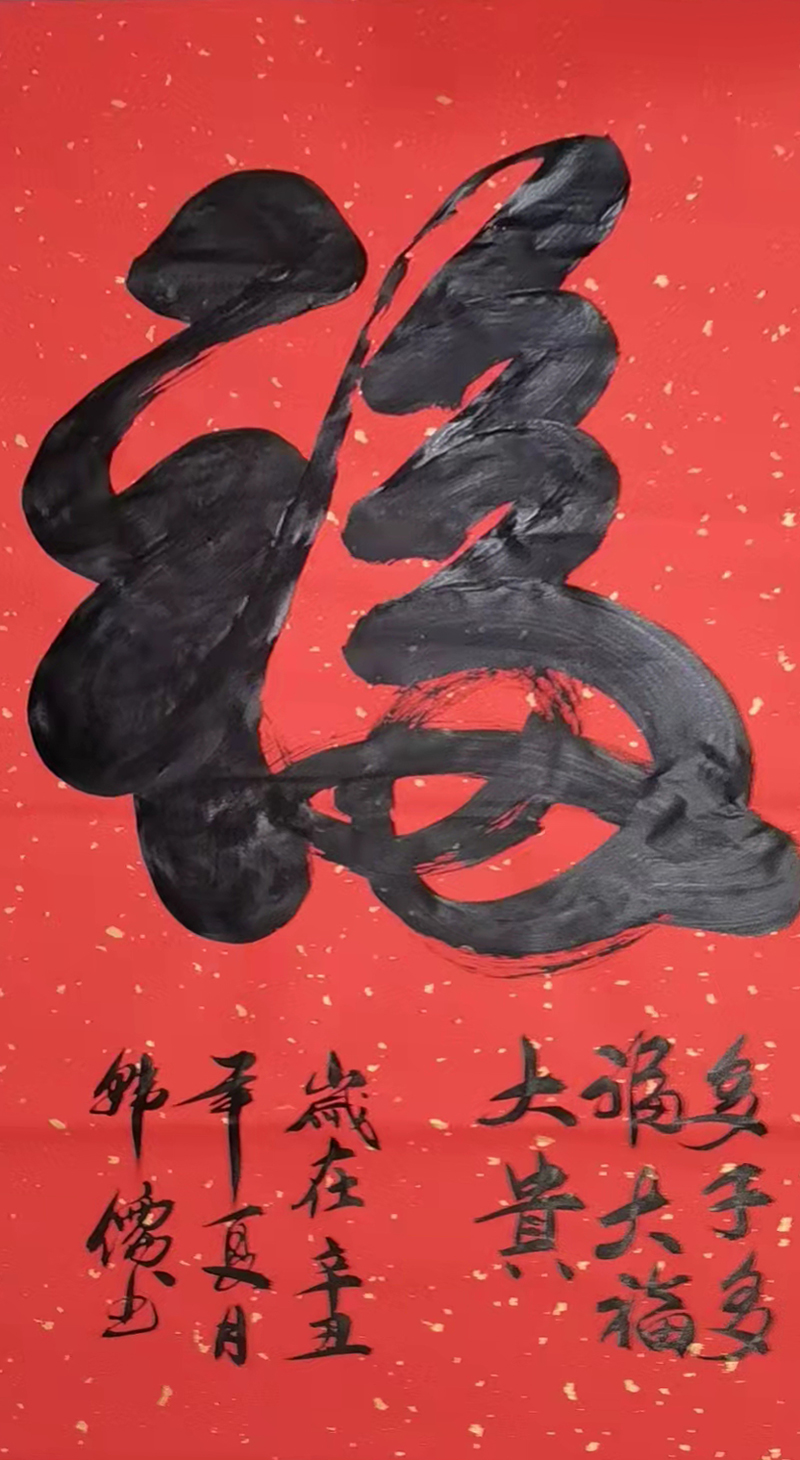 福
多子多
福大福
大貴
歲在辛丑
年夏月
韩儒书